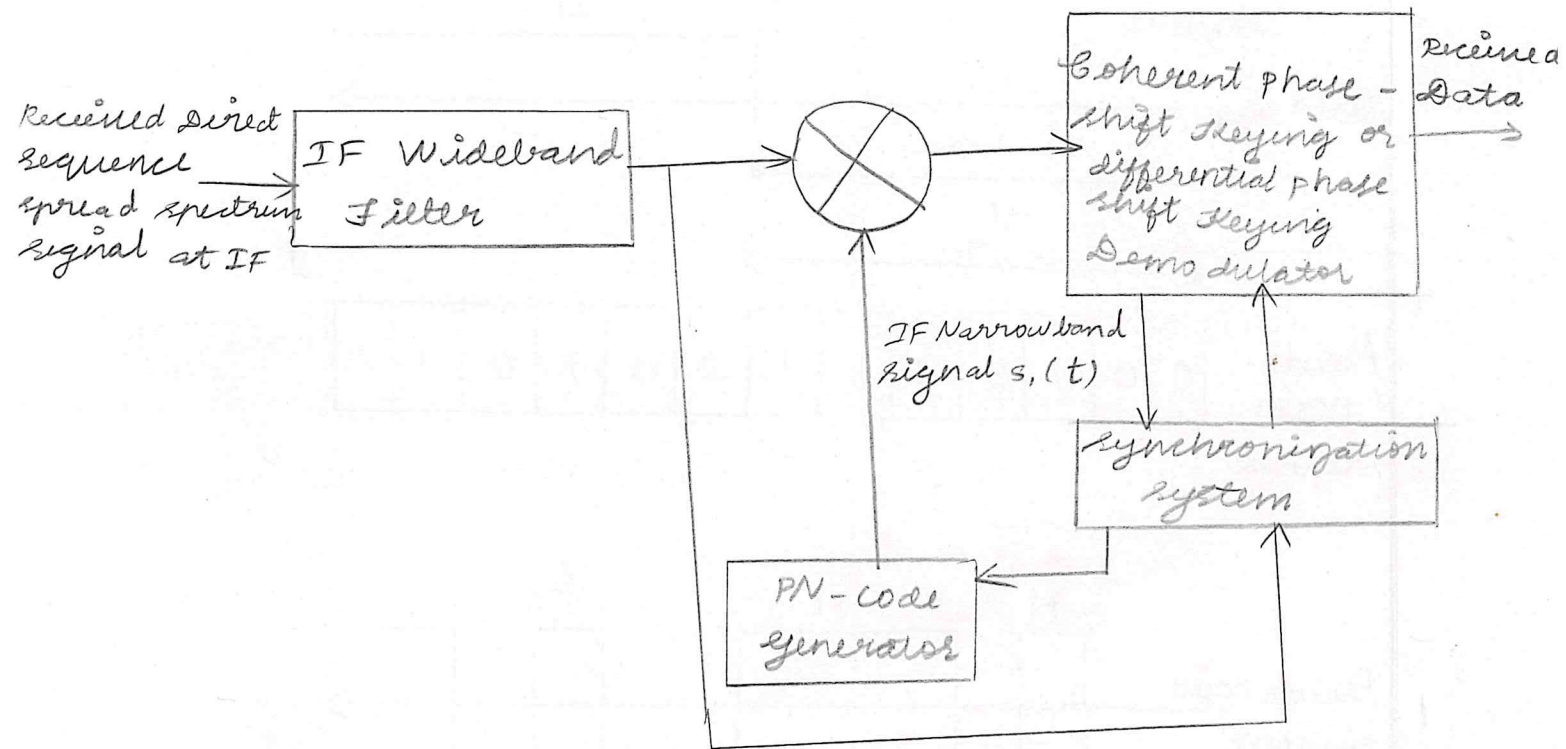 Received Direct
sequence
spread spectrum
signal at IF
IF Wideband
Filter
Coherent phase -
shift Keying or
differential phase
shift Keying
Demodulator
Received
Data
IF Narrowband
signal s,(t)
Synchronization
system
PN-code
Generator